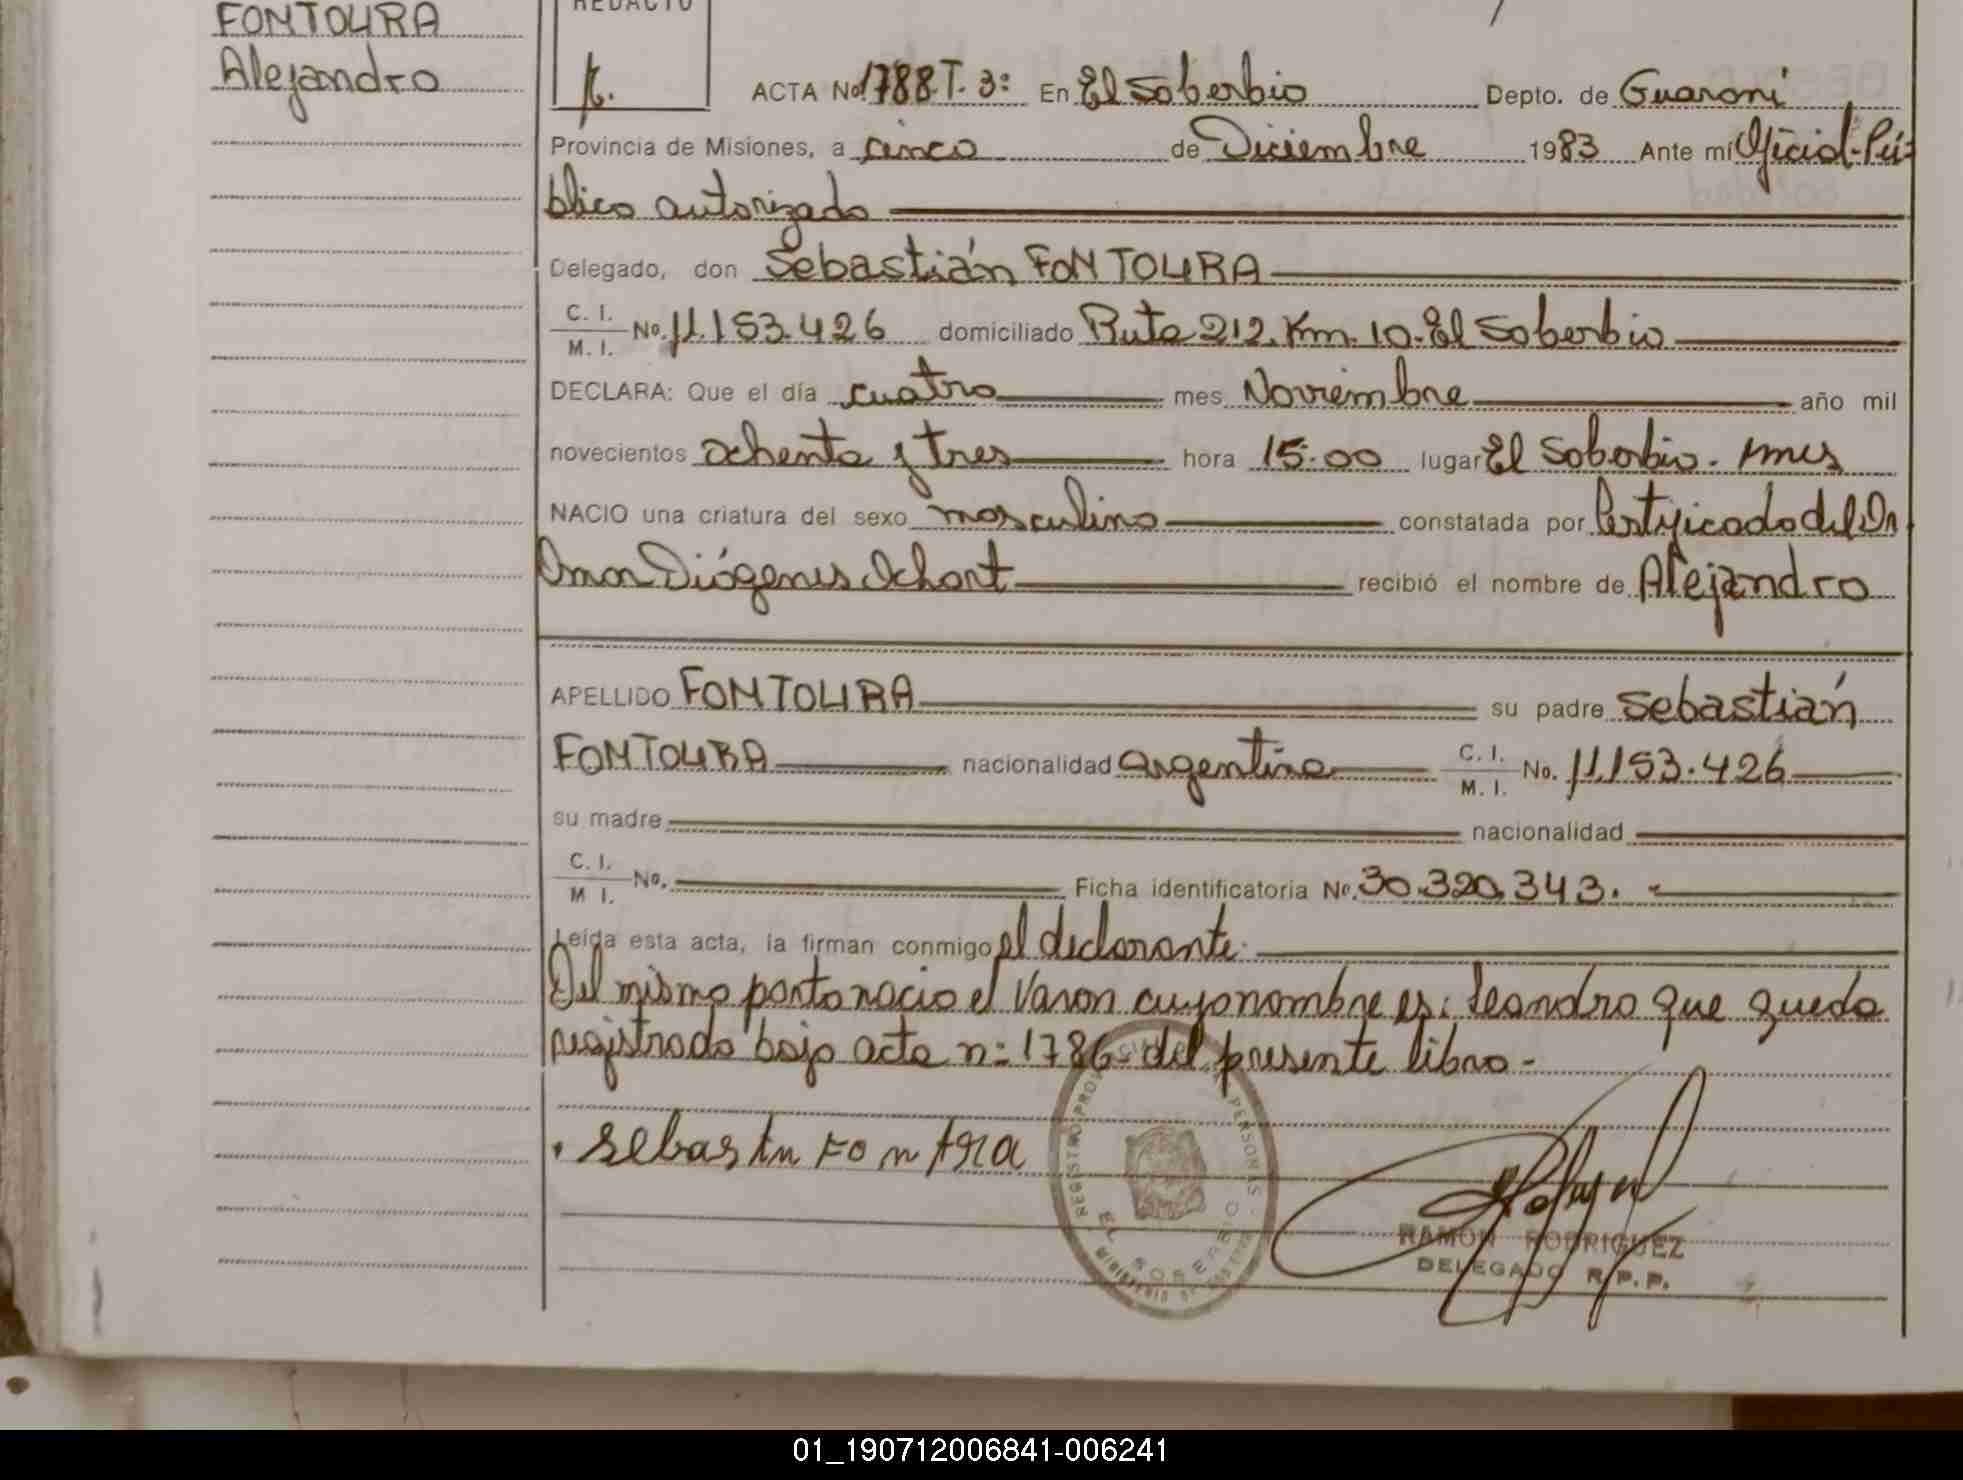 FONTOURA
Alejandro
REDACTO
ACTA No. 1788 T. 3: En El Soberbio Depto. de Guarani
Provincia de Misiones, a cinco de Diciembre 1983 Ante mí Oficial Pú-
blico autorizado
Delegado, don Sebastián FONTOURA
C. I. M. I. No. 11.153.426 domiciliado Ruta 212. Km. 10. El Soberbio
DECLARA: Que el día cuatro mes Noviembre año mil
novecientos ochenta y tres hora 15:00 lugar El Soberbio. Mnes
NACIO una criatura del sexo masculino constatada por Certificado del Dr
Omar Diógenes Ichart recibió el nombre de Alejandro
APELLIDO FONTOURA su padre Sebastián
FONTOURA nacionalidad argentina C. I. M. I. No. 11.153.426
su madre nacionalidad
C. I. M I. No. Ficha identificatoria No. 30.320.343.
Leída esta acta, la firman conmigo el declarante.
Del mismo parto nacio el Varon cuyo nombre es: Leandro que queda
registrado bajo acta n: 1786 del presente libro -
sebastin Fontra
EL SOBERBIO
RAMON RODRIGUEZ
DELEGADO R.P.P.
01_190712006841-006241